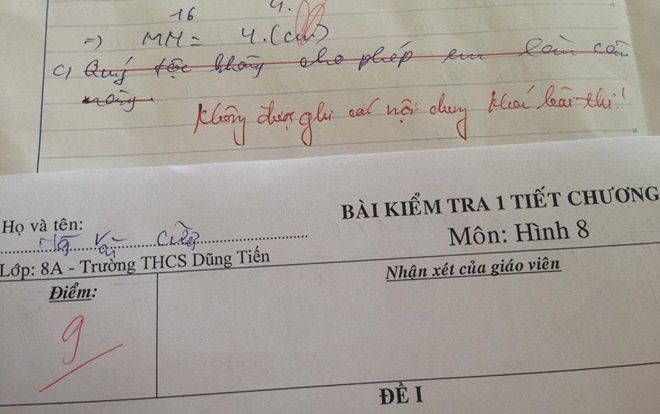 16 4.
=> MN = 4. (cm)
c) Quý tộc không cho phép em làm câu
này.
Không được ghi các nội dung khác bài thi!
Họ và tên: Văn
BÀI KIỂM TRA 1 TIẾT CHƯƠNG
Môn: Hình 8
Lớp: 8A - Trường THCS Dũng Tiến
Điểm:
Nhận xét của giáo viên
9
ĐỀ I